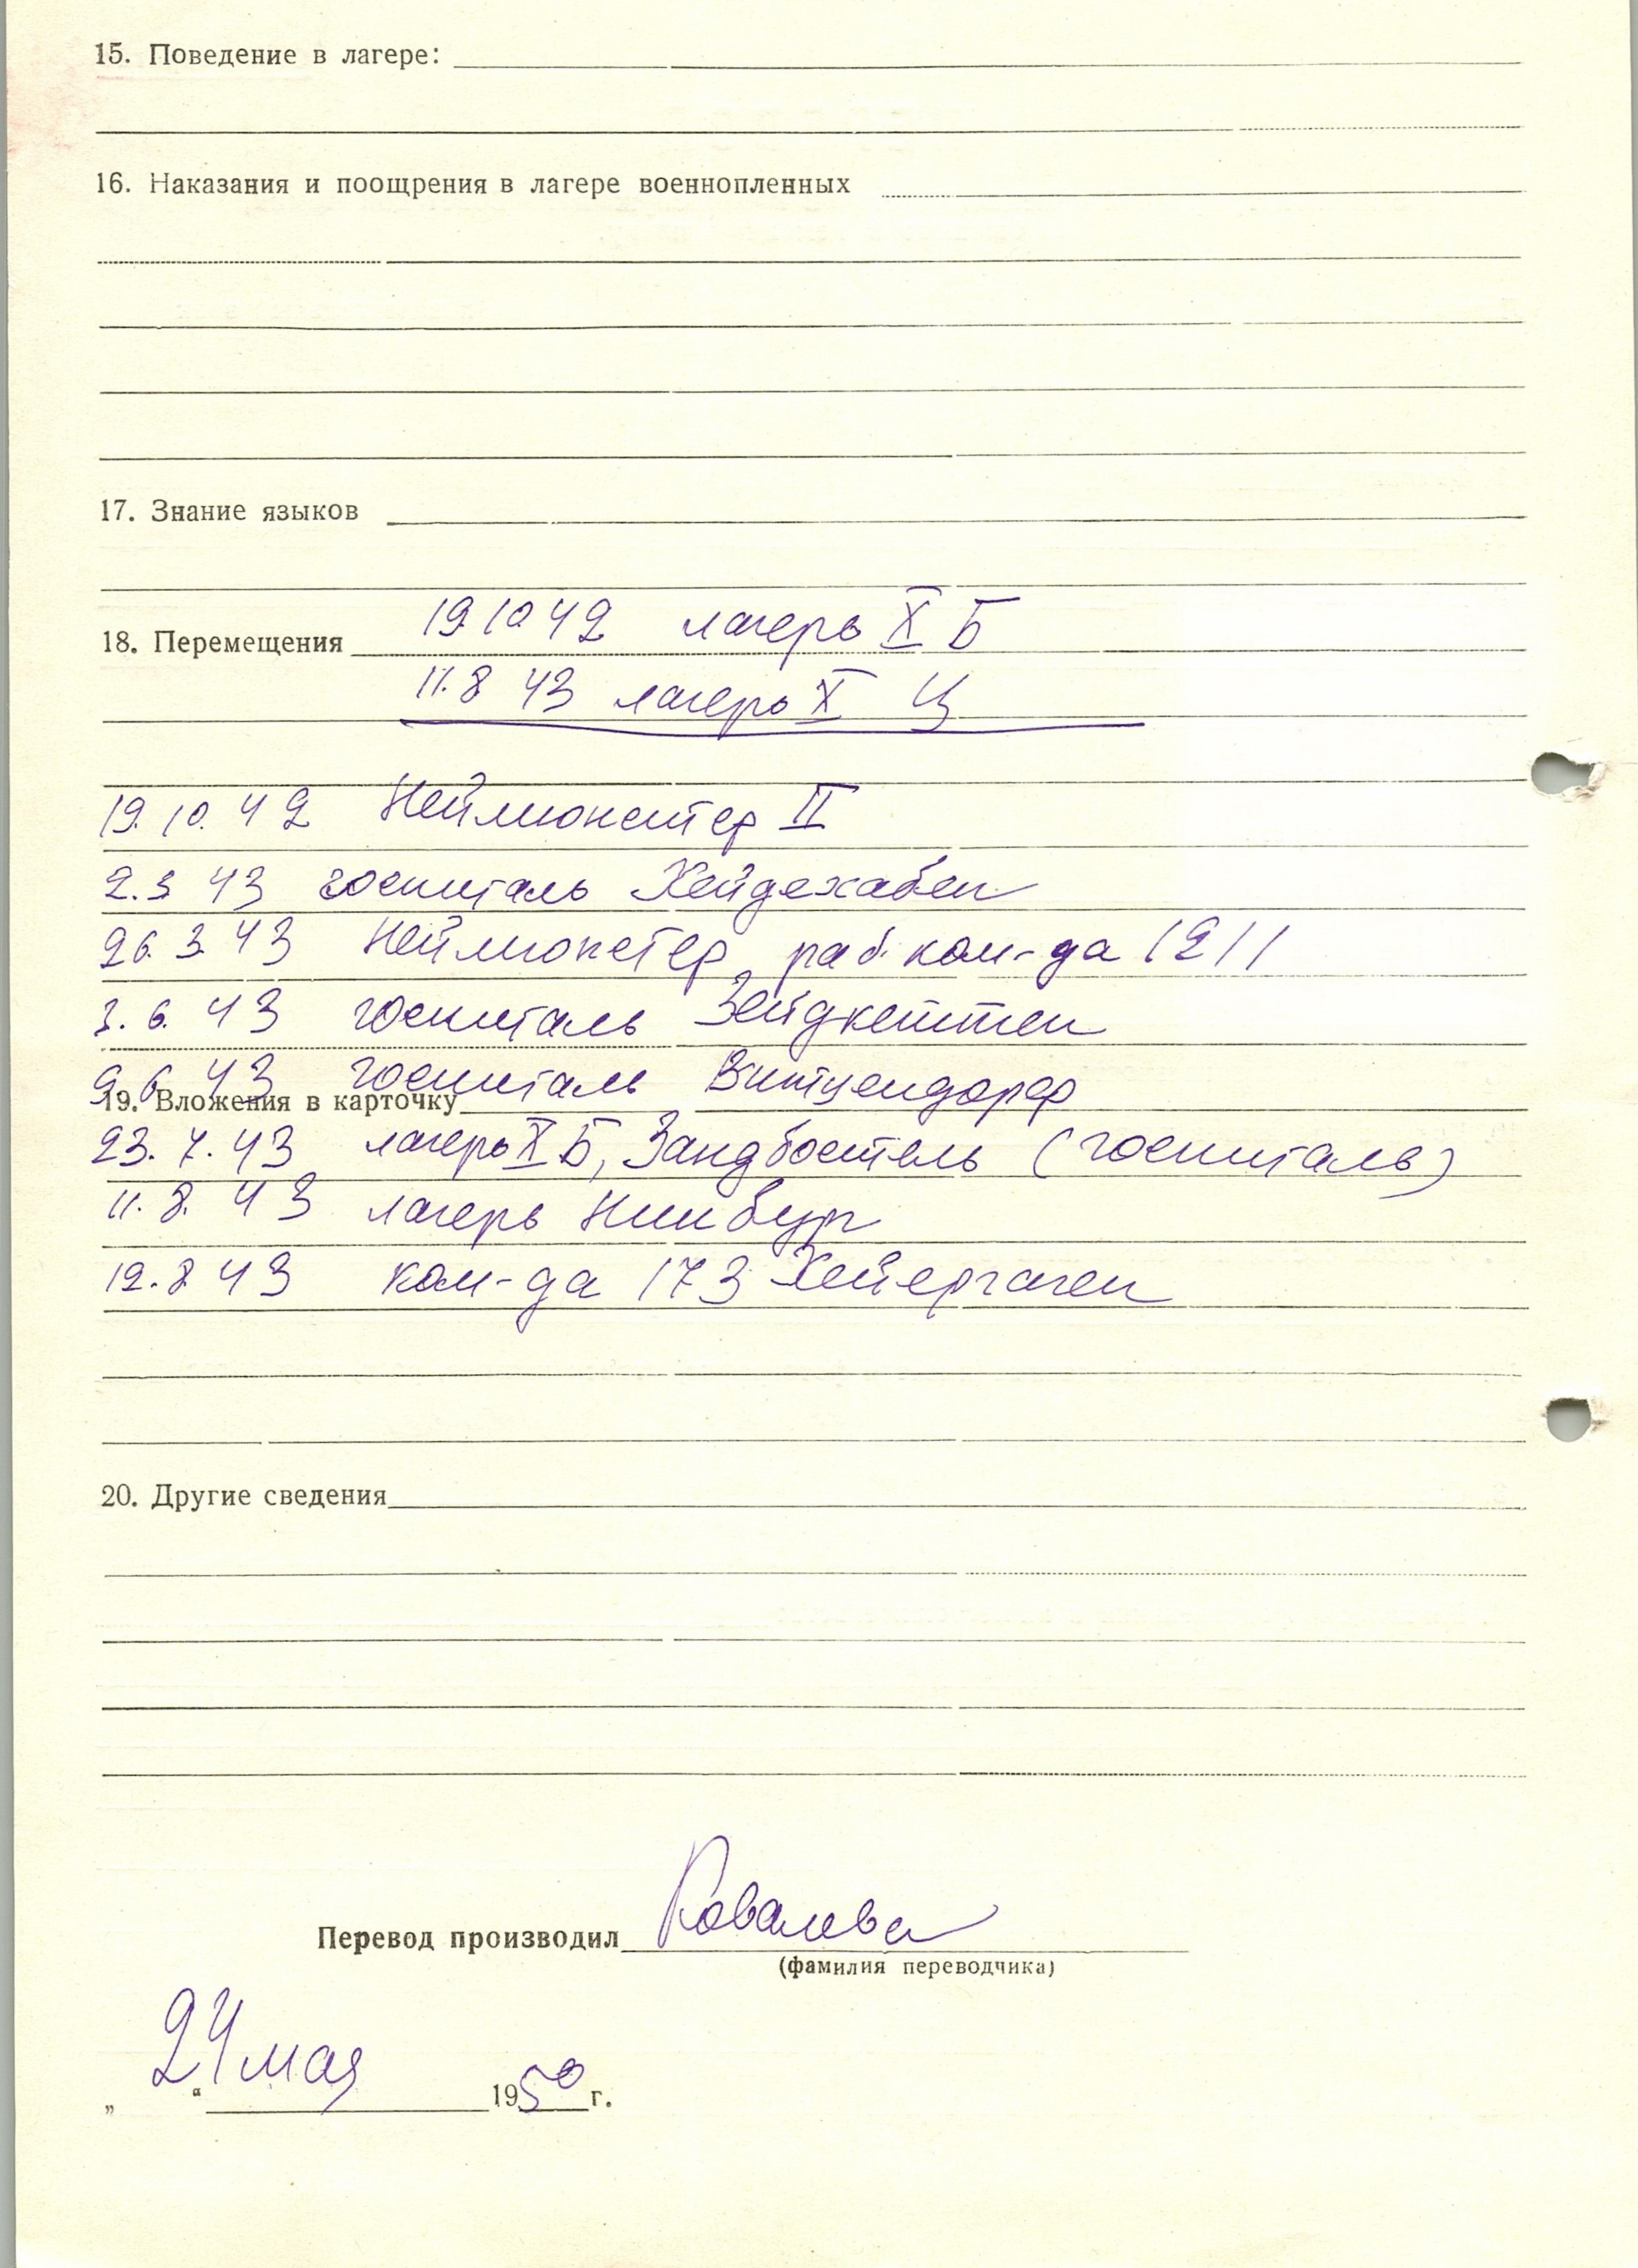 15. Поведение в лагере:
16. Наказания и поощрения в лагере военнопленных
17. Знание языков
18. Перемещения 19 10 42 лагерь X Б
11.8 43 лагерь X Ц
19. 10. 42 Неймюнстер II
2.3 43 госпиталь Хейдекабен
26. 3 43 Неймюнстер раб. ком-да 1211
3. 6. 43 госпиталь Зейдкеттен
9.6. 43 госпиталь Витцендорф
19. Вложения в карточку
23. 7. 43 лагерь X Б, Зандбостель (госпиталь)
11. 8. 43 лагерь Нинбург
12. 8 43 ком-да 173 Хейергаген
20. Другие сведения
Перевод производил Ковалева
(фамилия переводчика)
„24“ мая 1950 г.